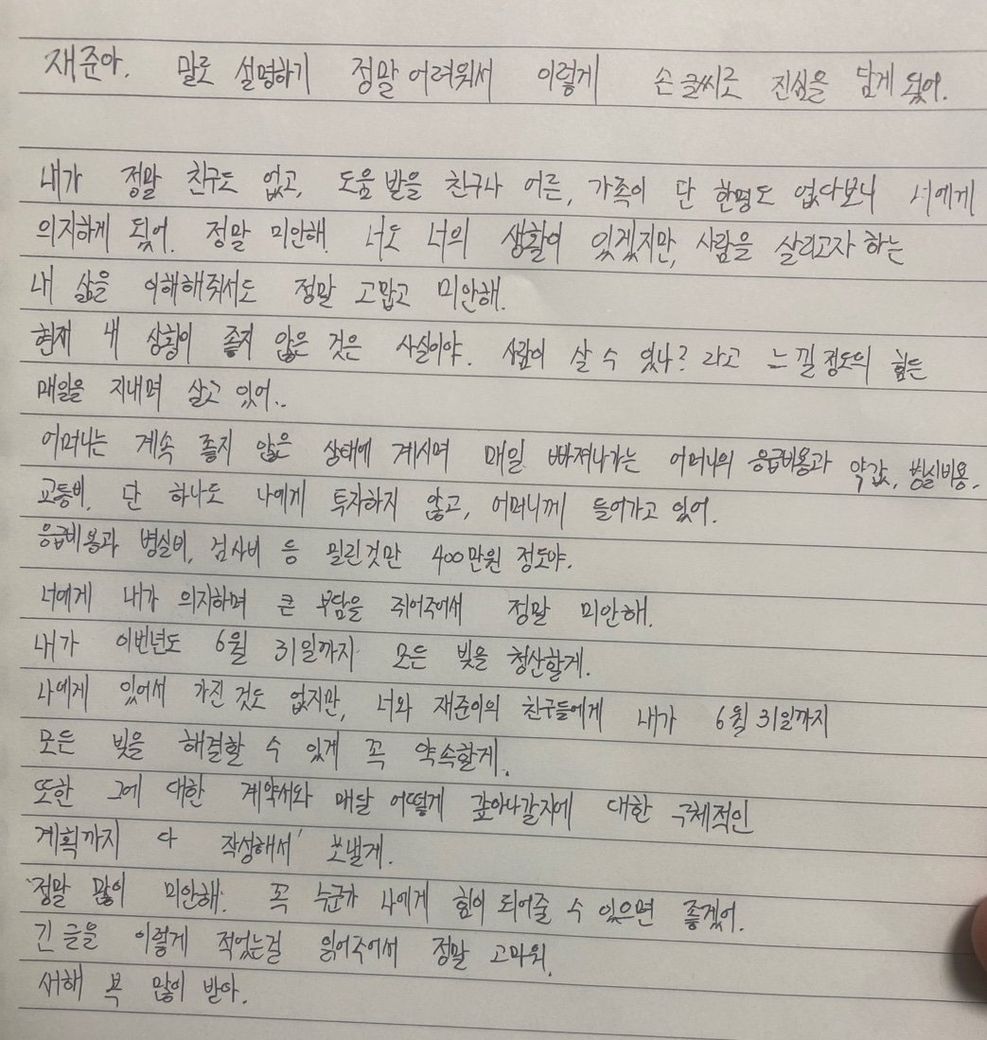 재준아. 말로 설명하기 정말 어려워서 이렇게 손글씨로 진심을 담게 됬어.
내가 정말 친구도 없고, 도움 받을 친구나 어른, 가족이 단 한명도 없다보니 너에게
의지하게 됬어. 정말 미안해. 너도 너의 생활이 있겠지만, 사람을 살리고자 하는
내 삶을 이해해줘서도 정말 고맙고 미안해.
현재 내 상황이 좋지 않은 것은 사실이야. 사람이 살 수 있나? 라고 느낄정도의 힘든
매일을 지내며 살고 있어..
어머니는 계속 좋지 않은 상태에 계시며 매일 빠져나가는 어머니의 응급비용과 약값, 병실비용.
교통비, 단 하나도 나에게 투자하지 않고, 어머니께 들어가고 있어.
응급비용과 병실비, 검사비 등 밀린것만 400만원 정도야.
너에게 내가 의지하며 큰 부담을 쥐어주어서 정말 미안해.
내가 이번년도 6월 31일까지 모든 빚을 청산할게.
나에게 있어서 가진 것도 없지만, 너와 재준이의 친구들에게 내가 6월 31일까지
모든 빚을 해결할 수 있게 꼭 약속할게.
또한 그에 대한 계약서와 매달 어떻게 갚아나갈지에 대한 구체적인
계획까지 다 작성해서 보낼게.
정말 많이 미안해. 꼭 누군가 나에게 힘이 되어줄 수 있으면 좋겠어.
긴 글을 이렇게 적었는걸 읽어주어서 정말 고마워.
새해 복 많이 받아.